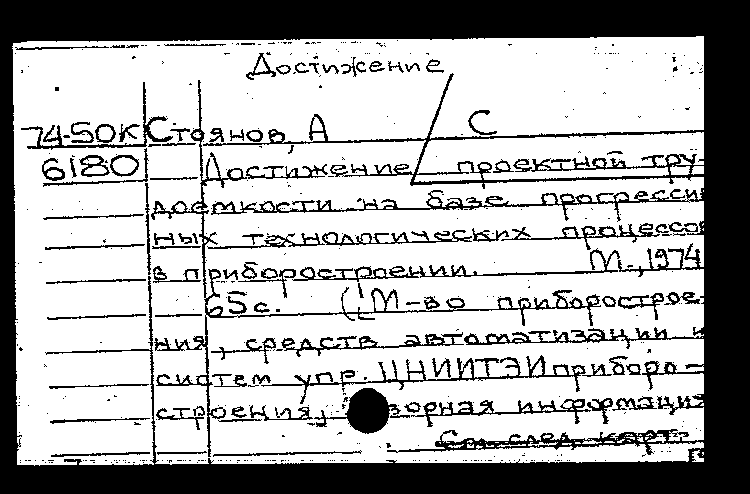 Достижение
74-50К Стоянов, А С
6180 Достижение проектной тру-
доемкости на базе прогресси
ных технологических процессов
в приборостроении. М., 1974
65с. (М-во приборострое-
ния, средств автоматизации и
систем упр. ЦНИИТЭИ приборо-
строения, зорная информация
См. след. карт.